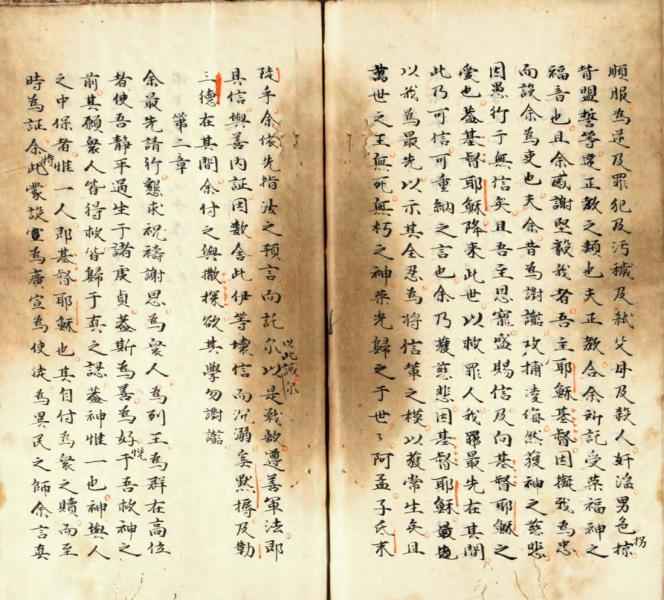 順服為逆及罪犯及污穢及弒父母及殺人奸淫男色掠拐
背盟誓等逆正教之類也夫正教合余所託受荣福神之
福音也且余感謝堅毅我者吾主耶穌基督因擬我為忠
而設余為吏也夫余昔為謗讟攻捕凌侮然獲神之慈悲
因愚行于無信矣且吾主恩寵盛賜信及向基督耶穌之
愛也蓋基督耶穌降來此世以救罪人我罪最先在其間
此乃可信可重納之言也余乃獲慈悲因基督耶穌最先
以我為最先以示其全忍為將信輩之模以獲常生矣且
萬世之王無死無朽之神荣光歸之于世〻阿孟子氐末
陡手余依先指法之預言而託尔以是戰敵遵善軍法即以此誡尔
具信與善內証因數舍此伊等壞信而沉溺矣默搙及勒
三德在其間余付之與撒模欲其學勿謗讟
第二章
余最先請行懇求祝禱謝恩為衆人為列王為群在高位
者使吾靜平過生于諸虔貞蓋斯為善為好于吾救神之悅
前其願衆人皆得救皆歸于真之認蓋神惟一也神與人
之中保者惟一人即基督耶穌也其自付為衆之贖而至
時為証余此特蒙設宣為廣宣為使徒為異民之師余言真